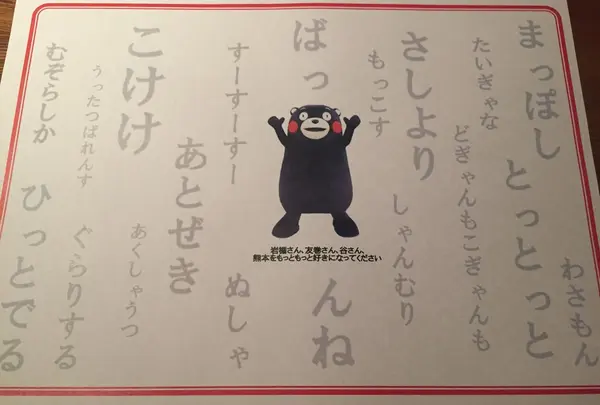 まっぽし
とっとっと
わさもん
たいぎゃな
どぎゃんもこぎゃんも
さしより
しゃんむり
もっこす
ばっ
んね
すーすーすー
ぬしゃ
あとぜき
こけけ
あくしゃうつ
うったつばれんす
ぐらりする
むぞらしか
ひっとでる
岩橋さん、友巻さん、谷さん、
熊本をもっともっと好きになってください